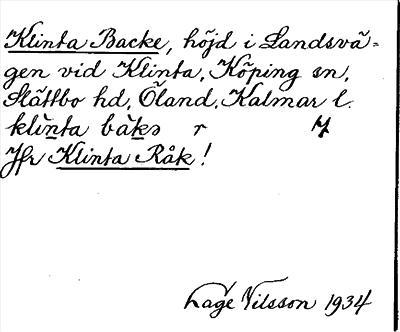 Klinta Backe, höjd i Landsvä-
gen vid Klinta, Köping sn,
Slättbo hd, Öland, Kalmar l.
klìnta bàkə r
Jfr Klinta Råk!
Lage Nilsson 1934